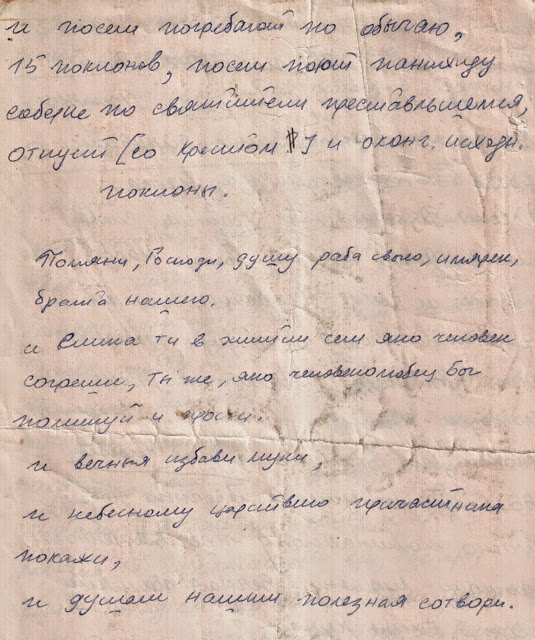 и посем погребают по обычаю,
15 поклонов, посем поют панихиду
соборне по святители преставльшемся,
отпуст [со крестом] и оконч. исходн.
поклоны.
Помяни, Господи, душу раба своего, имярек,
брата нашего.
и Елика ти в житии сем яко человек
согреши, ты же, яко человеколюбец Бог
помилуй и прости.
и вечныя избави муки,
и небесному царствию причастника
покажи,
и душам нашим полезная сотвори.